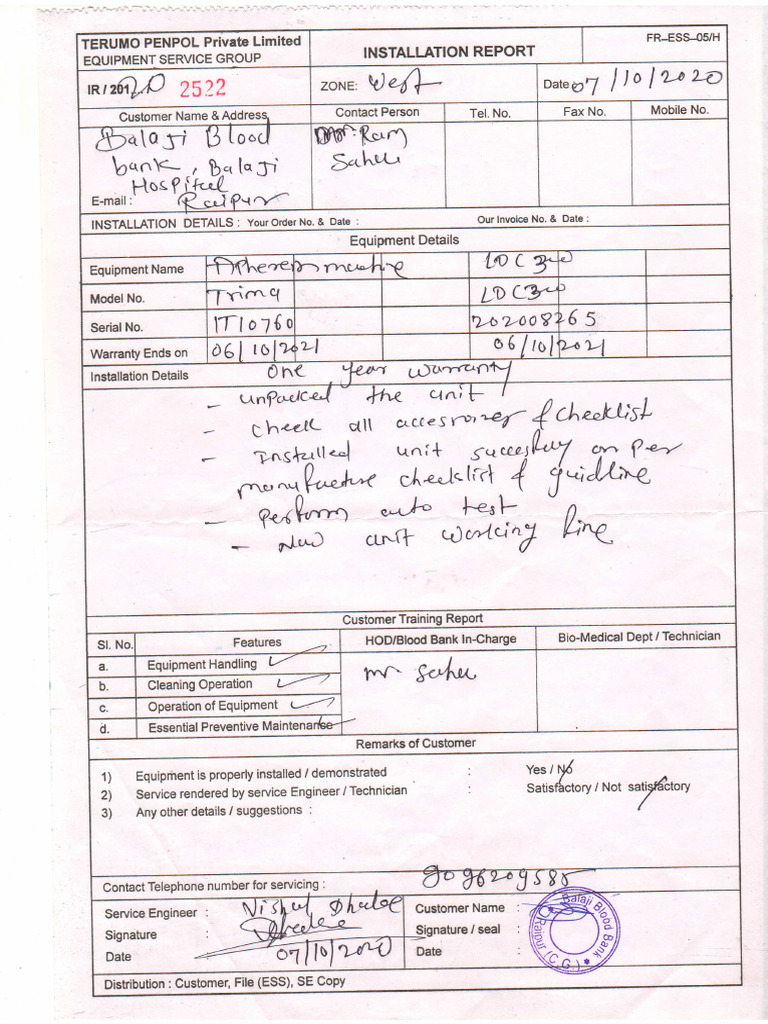 TERUMO PENPOL Private Limited
EQUIPMENT SERVICE GROUP
INSTALLATION REPORT
FR–ESS–05/H
IR / 201 20 2522
ZONE: West
Date 07/10/2020
Customer Name & Address
Contact Person
Tel. No.
Fax No.
Mobile No.
Balaji Blood
bank, Balaji
Hospital
Raipur
Mr. Ram
Sahu
E-mail :
INSTALLATION DETAILS : Your Order No. & Date :
Our Invoice No. & Date :
Equipment Details
Equipment Name Apheresis machine LDC300
Model No. Trima LDC300
Serial No. 1T10760 202008265
Warranty Ends on 06/10/2021 06/10/2021
Installation Details One year warranty
- unpacked the unit
- check all & checklist
- Installed unit per
manufacture checklist & guidline
- Perform auto test
- Now unit working fine
Customer Training Report
Sl. No. Features HOD/Blood Bank In-Charge Bio-Medical Dept / Technician
a. Equipment Handling
b. Cleaning Operation
c. Operation of Equipment
d. Essential Preventive Maintenance
mr Sahu
Remarks of Customer
1) Equipment is properly installed / demonstrated : Yes / No
2) Service rendered by service Engineer / Technician : Satisfactory / Not satisfactory
3) Any other details / suggestions :
Contact Telephone number for servicing : 9096209585
Service Engineer :
Signature :
Date 07/10/2020
Customer Name :
Signature / seal :
Date :
Balaji Blood Bank
Raipur (C.G.)
Distribution : Customer, File (ESS), SE Copy